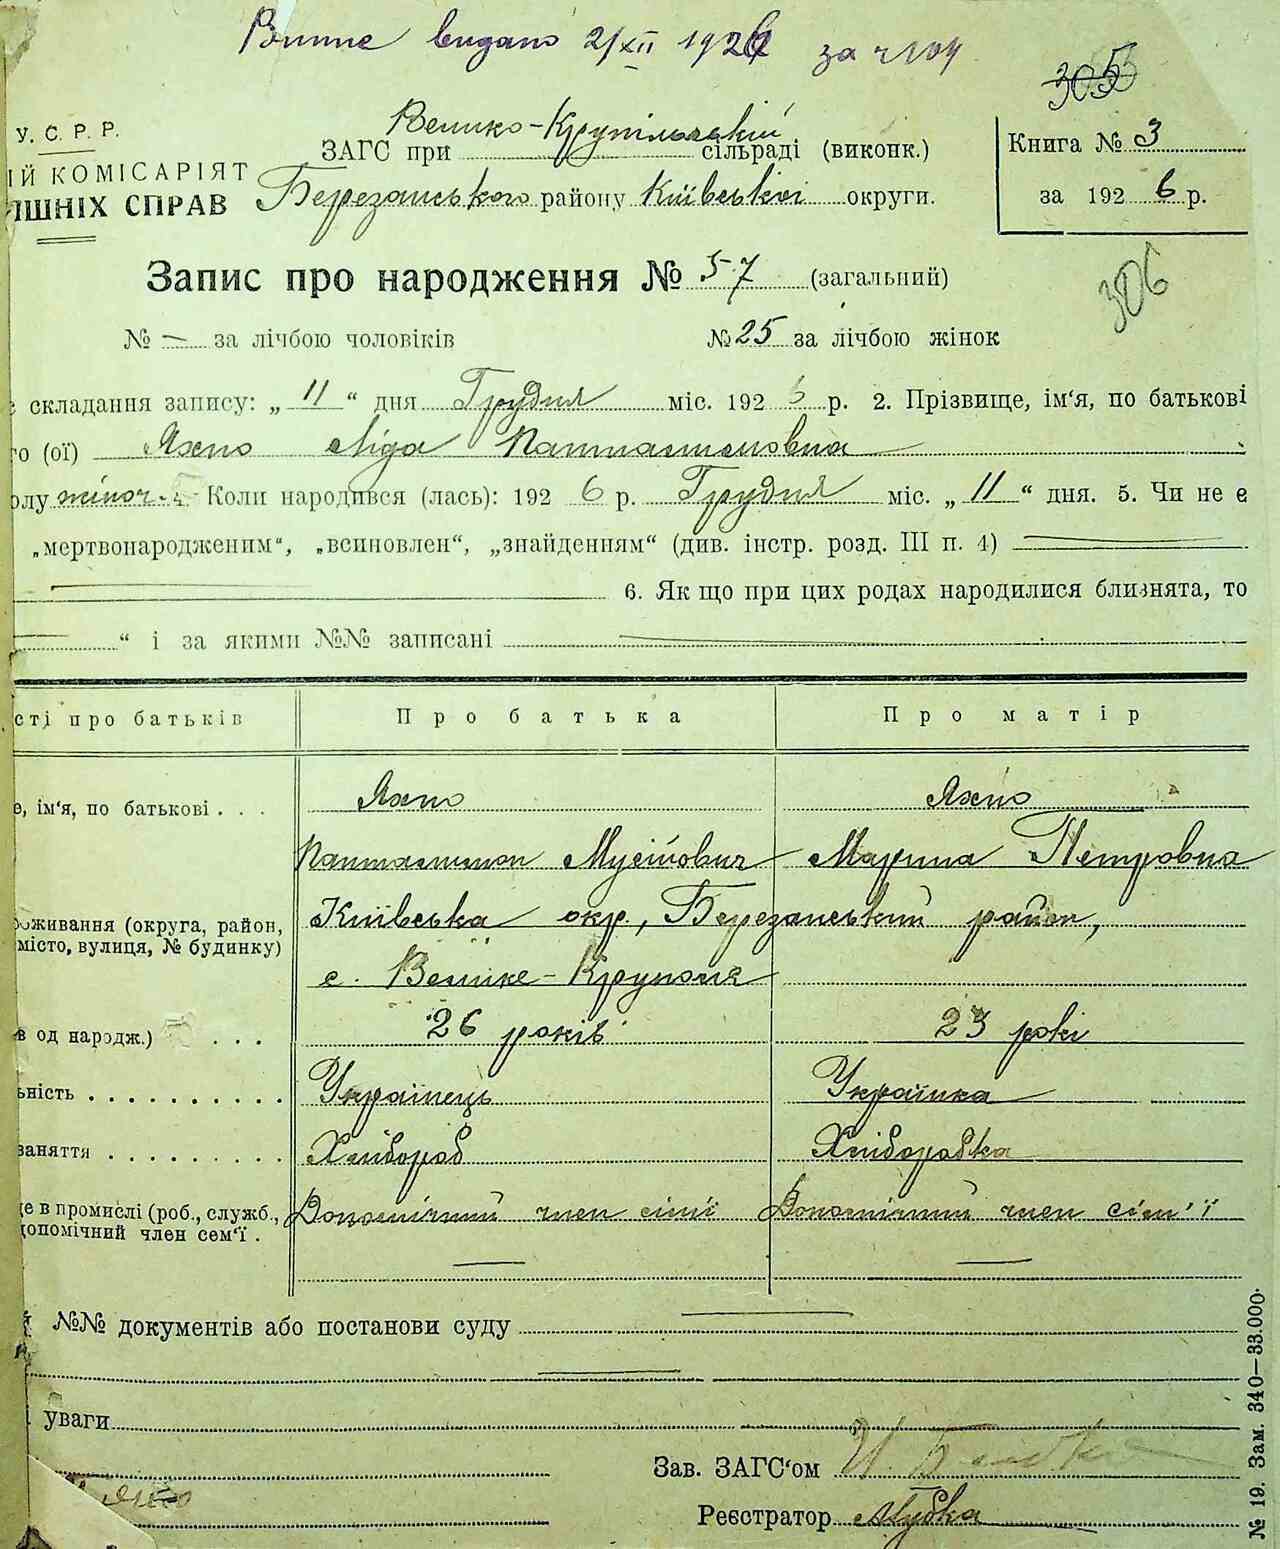 Виписи видано 2/XII 1926 за ч 104
305
У. С. Р. Р.
ІЙ КОМІСАРІЯТ
ІШНІХ СПРАВ
ЗАГС при Велико-Крупільській сільраді (виконк.)
Березанського району Київської округи.
Книга № 3
за 1926 р.
306
Запис про народження № 57 (загальний)
№ — за лічбою чоловіків № 25 за лічбою жінок
складання запису: „ 11 “ дня Грудня міс. 1926 р. 2. Прізвище, ім‘я, по батькові
го (ої) Яхно Ліда Пантелимоновна
олу жіноч. 4. Коли народився (лась): 1926 р. Грудня міс. „ 11 “ дня. 5. Чи не є
„мертвонародженим“, „всиновлен“, „знайденням“ (див. інстр. розд. III п. 4)
6. Як що при цих родах народилися близнята, то
“ і за якими №№ записані
сті про батьків Про батька Про матір
е, ім‘я, по батькові . . . Яхно Яхно
Пантелимон Мусійович Марина Петровна
оживання (округа, район, Київська окр., Березанський район,
місто, вулиця, № будинку) с. Велике-Крупполя
в од народж.) . . . 26 років 23 роки
ьність . . . . . . . . . . Українець Українка
заняття . . . . . . . . . Хлібороб Хліборобка
це в промислі (роб., служб., Допомічний член сімї Допомічний член сім'ї
допомічний член сем‘ї .
№№ документів або постанови суду
уваги
Зав. ЗАГС‘ом
Реєстратор
№ 19. Зам. 340—33.000.